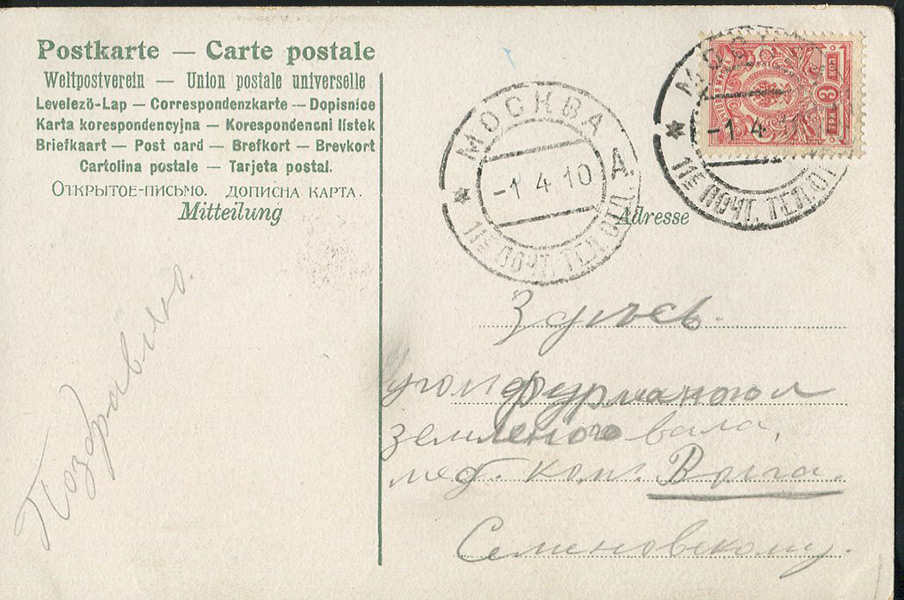 Postkarte — Carte postale
Weltpostverein — Union postale universelle
Levelező-Lap — Correspondenzkarte — Dopisnice
Karta korespondencyjna — Korespondencni listek
Briefkaart — Post card — Brefkort — Brevkort
Cartolina postale — Tarjeta postal.
Открытое-письмо. Дописна карта.
Mitteilung
Поздравляю.
МОСКВА
-1 4 10
А
11Е ПОЧТ. ТЕЛ. ОТД.
МОСКВА
-1 4
11Е ПОЧТ. ТЕЛ. ОТ
3
Adresse
Здѣсь.
Земленого вала,
мед.
Семеновскому.